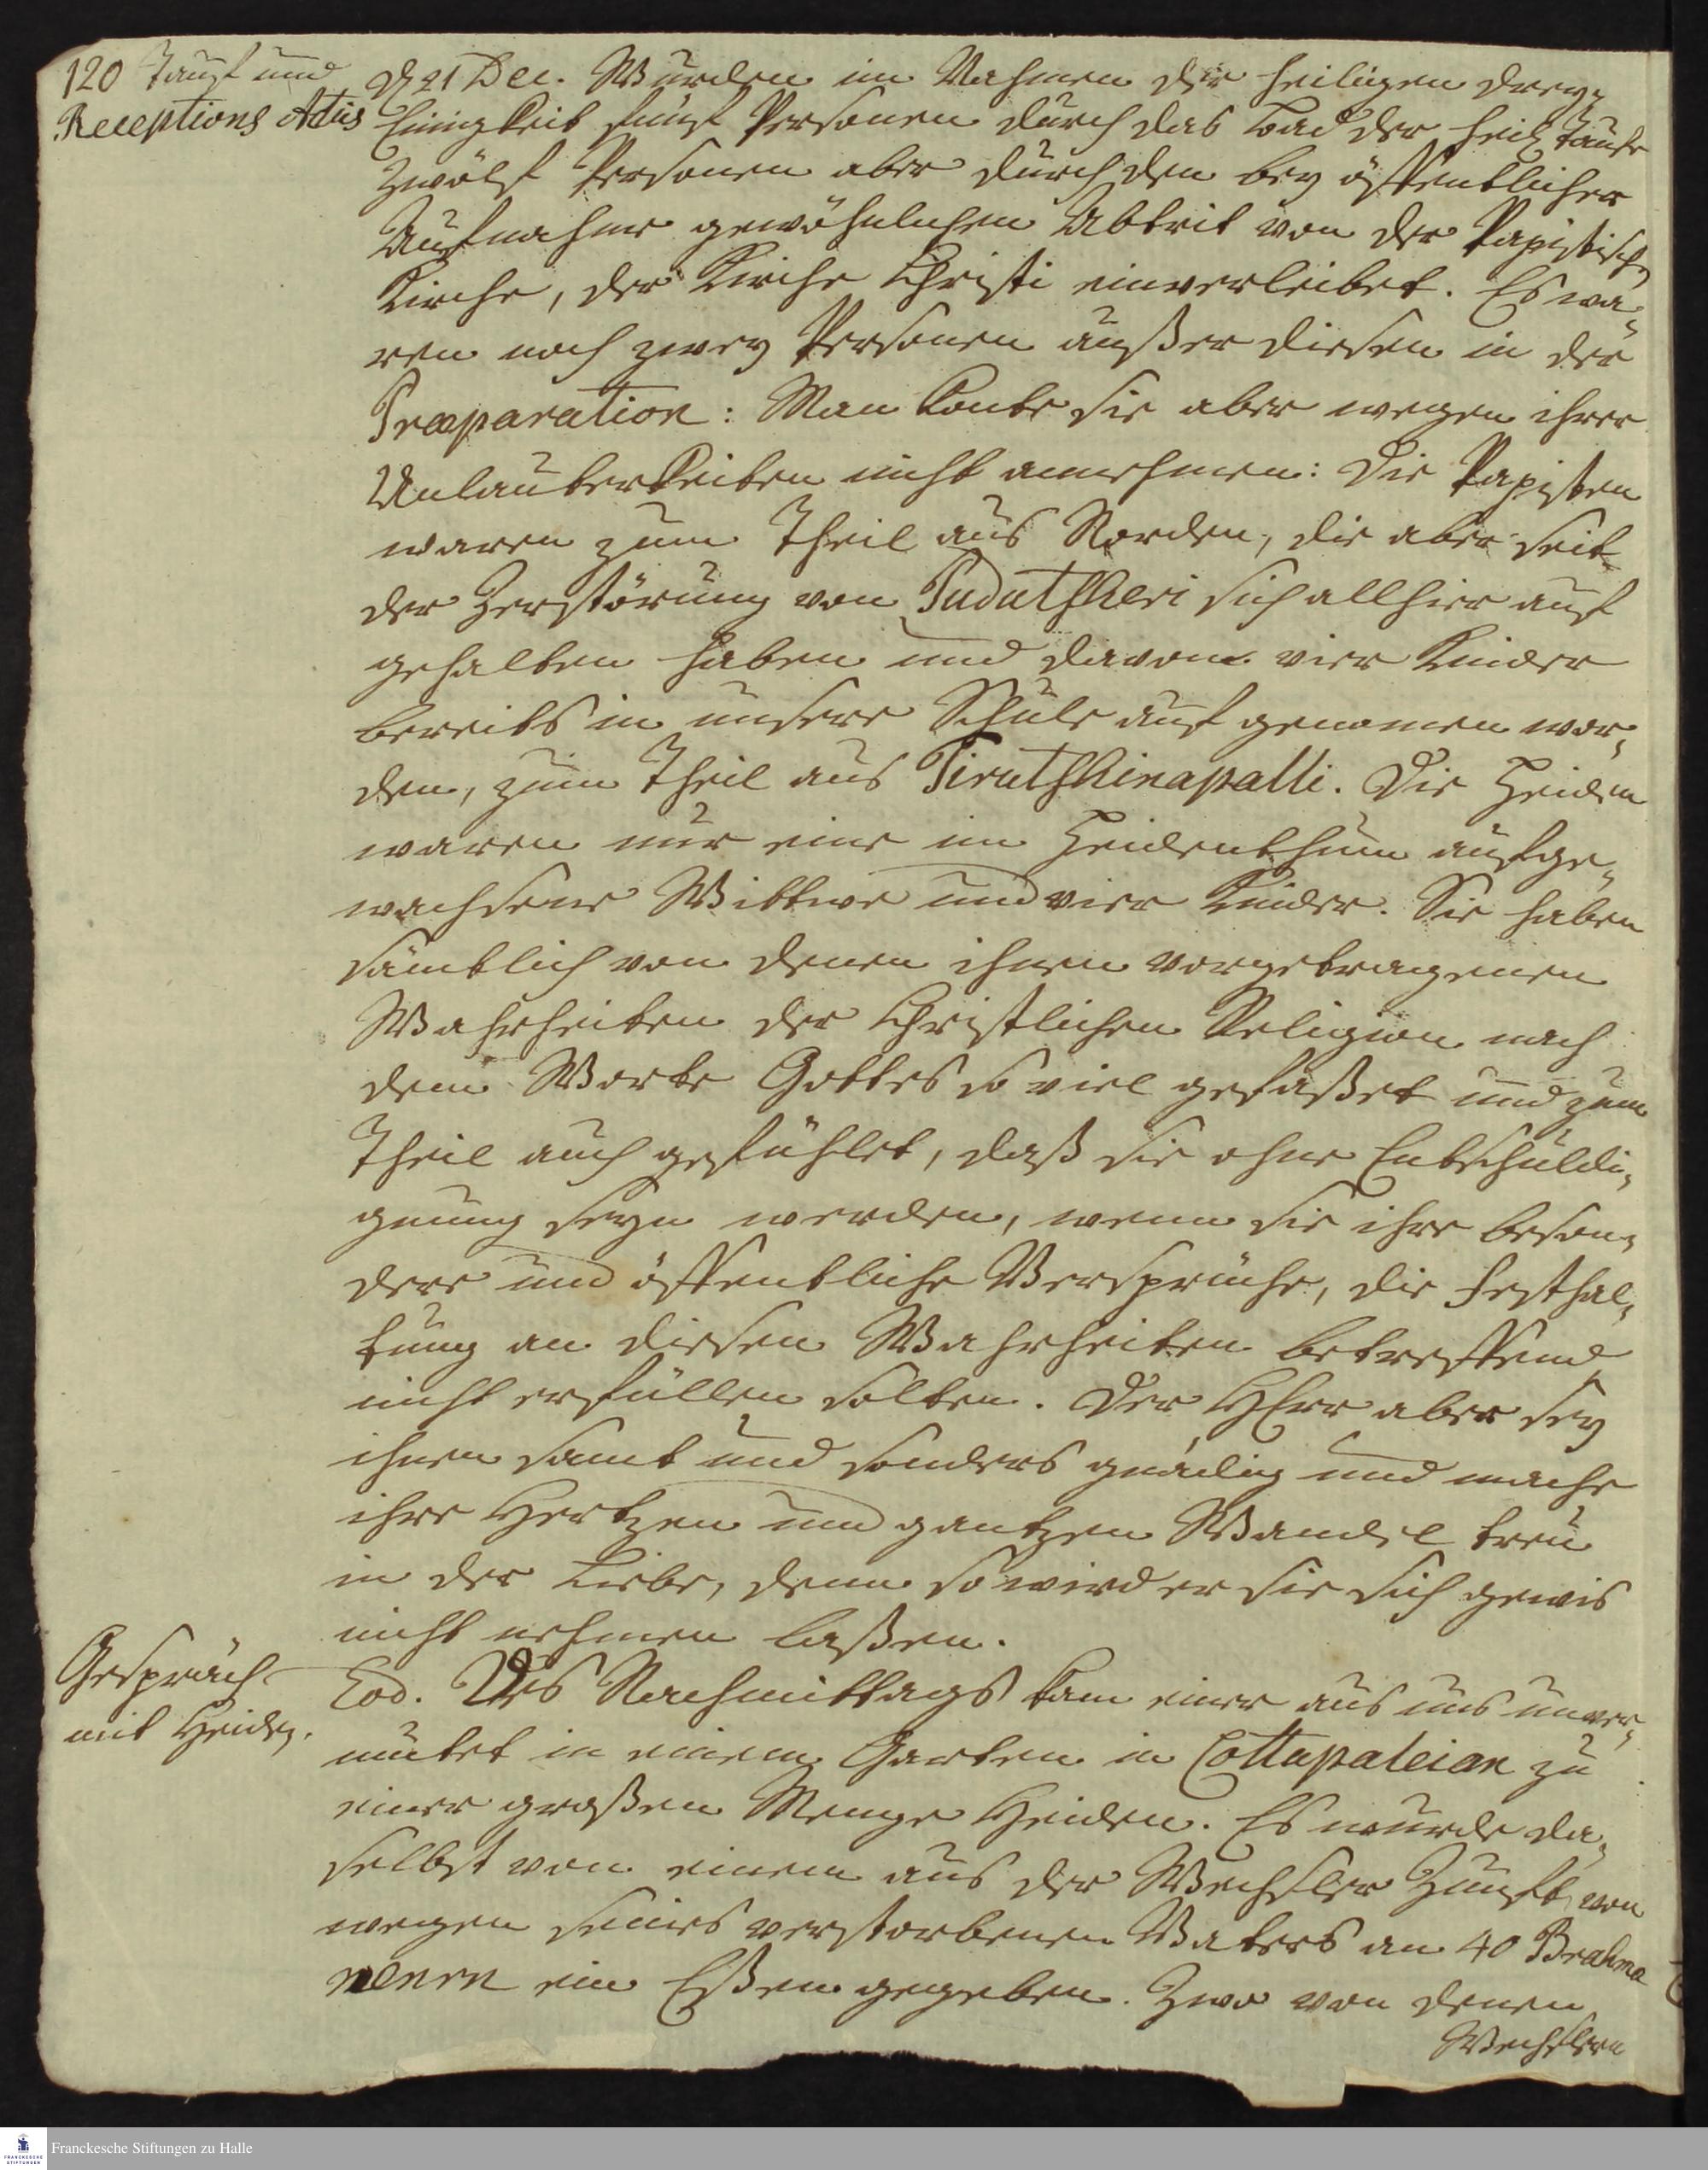 120 Tauf und
Receptions Actus
D 21 Dec. Wurden im Nahmen der heiligen Drey„
Einigkeit fünf Personen durch das Bad der heil. Taufe
Zwölf Personen aber durch den bey öffentlicher
Aufnahme gewöhnlichen Abtrit von der Papistisch
Kirche, der Kirche Christi einverleibet. Es wa„
ren noch zwey Personen außer diesen in der
Præparation: Man konte sie aber wegen ihrer
Unlauterkeiten nicht annehmen: Die Papisten
waren zum Theil aus Norden, die aber seit
der Zerstörung von Pudutsheri sich allhier auf
gehalten haben und davon vier Kinder
bereits in unsere Schule auf genomen wor„
den, zum Theil aus Tirutshinapalli. Die Heiden
waren nur eine im Heidenthum aufge„
wachsene Wittwe und vier Kinder. Sie haben
sämtlich von denen ihnen vorgetragenen
Wahrheiten der Christlichen Religion nach
dem Worte Gottes so viel gefaßet und zum
Theil auch gefühlet, daß sie ohne Entschuldi„
gung seyn werden, wenn sie ihre beson„
dere und öffentliche Versprüche, die Festhal„
tung an diesen Wahrheiten betreffend
nicht erfüllen solten. Der HErr aber sey
ihnen samt und sonders gnädig und mache
ihre Hertzen und gantzen Wandel treu
in der Liebe, denn so wird er sie sich gewis
nicht nehmen laßen.
Gespräch
mit Heiden.
Eod. Des Nachmittags kam einer aus uns unver„
mutet in einem Garten in Cottapaleian zu
einer großen Menge Heiden. Es wurde da„
selbst von einem aus der Wechsler Zunft von
wegen seines verstorbenen Vaters an 40 Brahma
nenen ein Eßen gegeben. Zwo von denen
Wechslern
Franckesche Stiftungen zu Halle